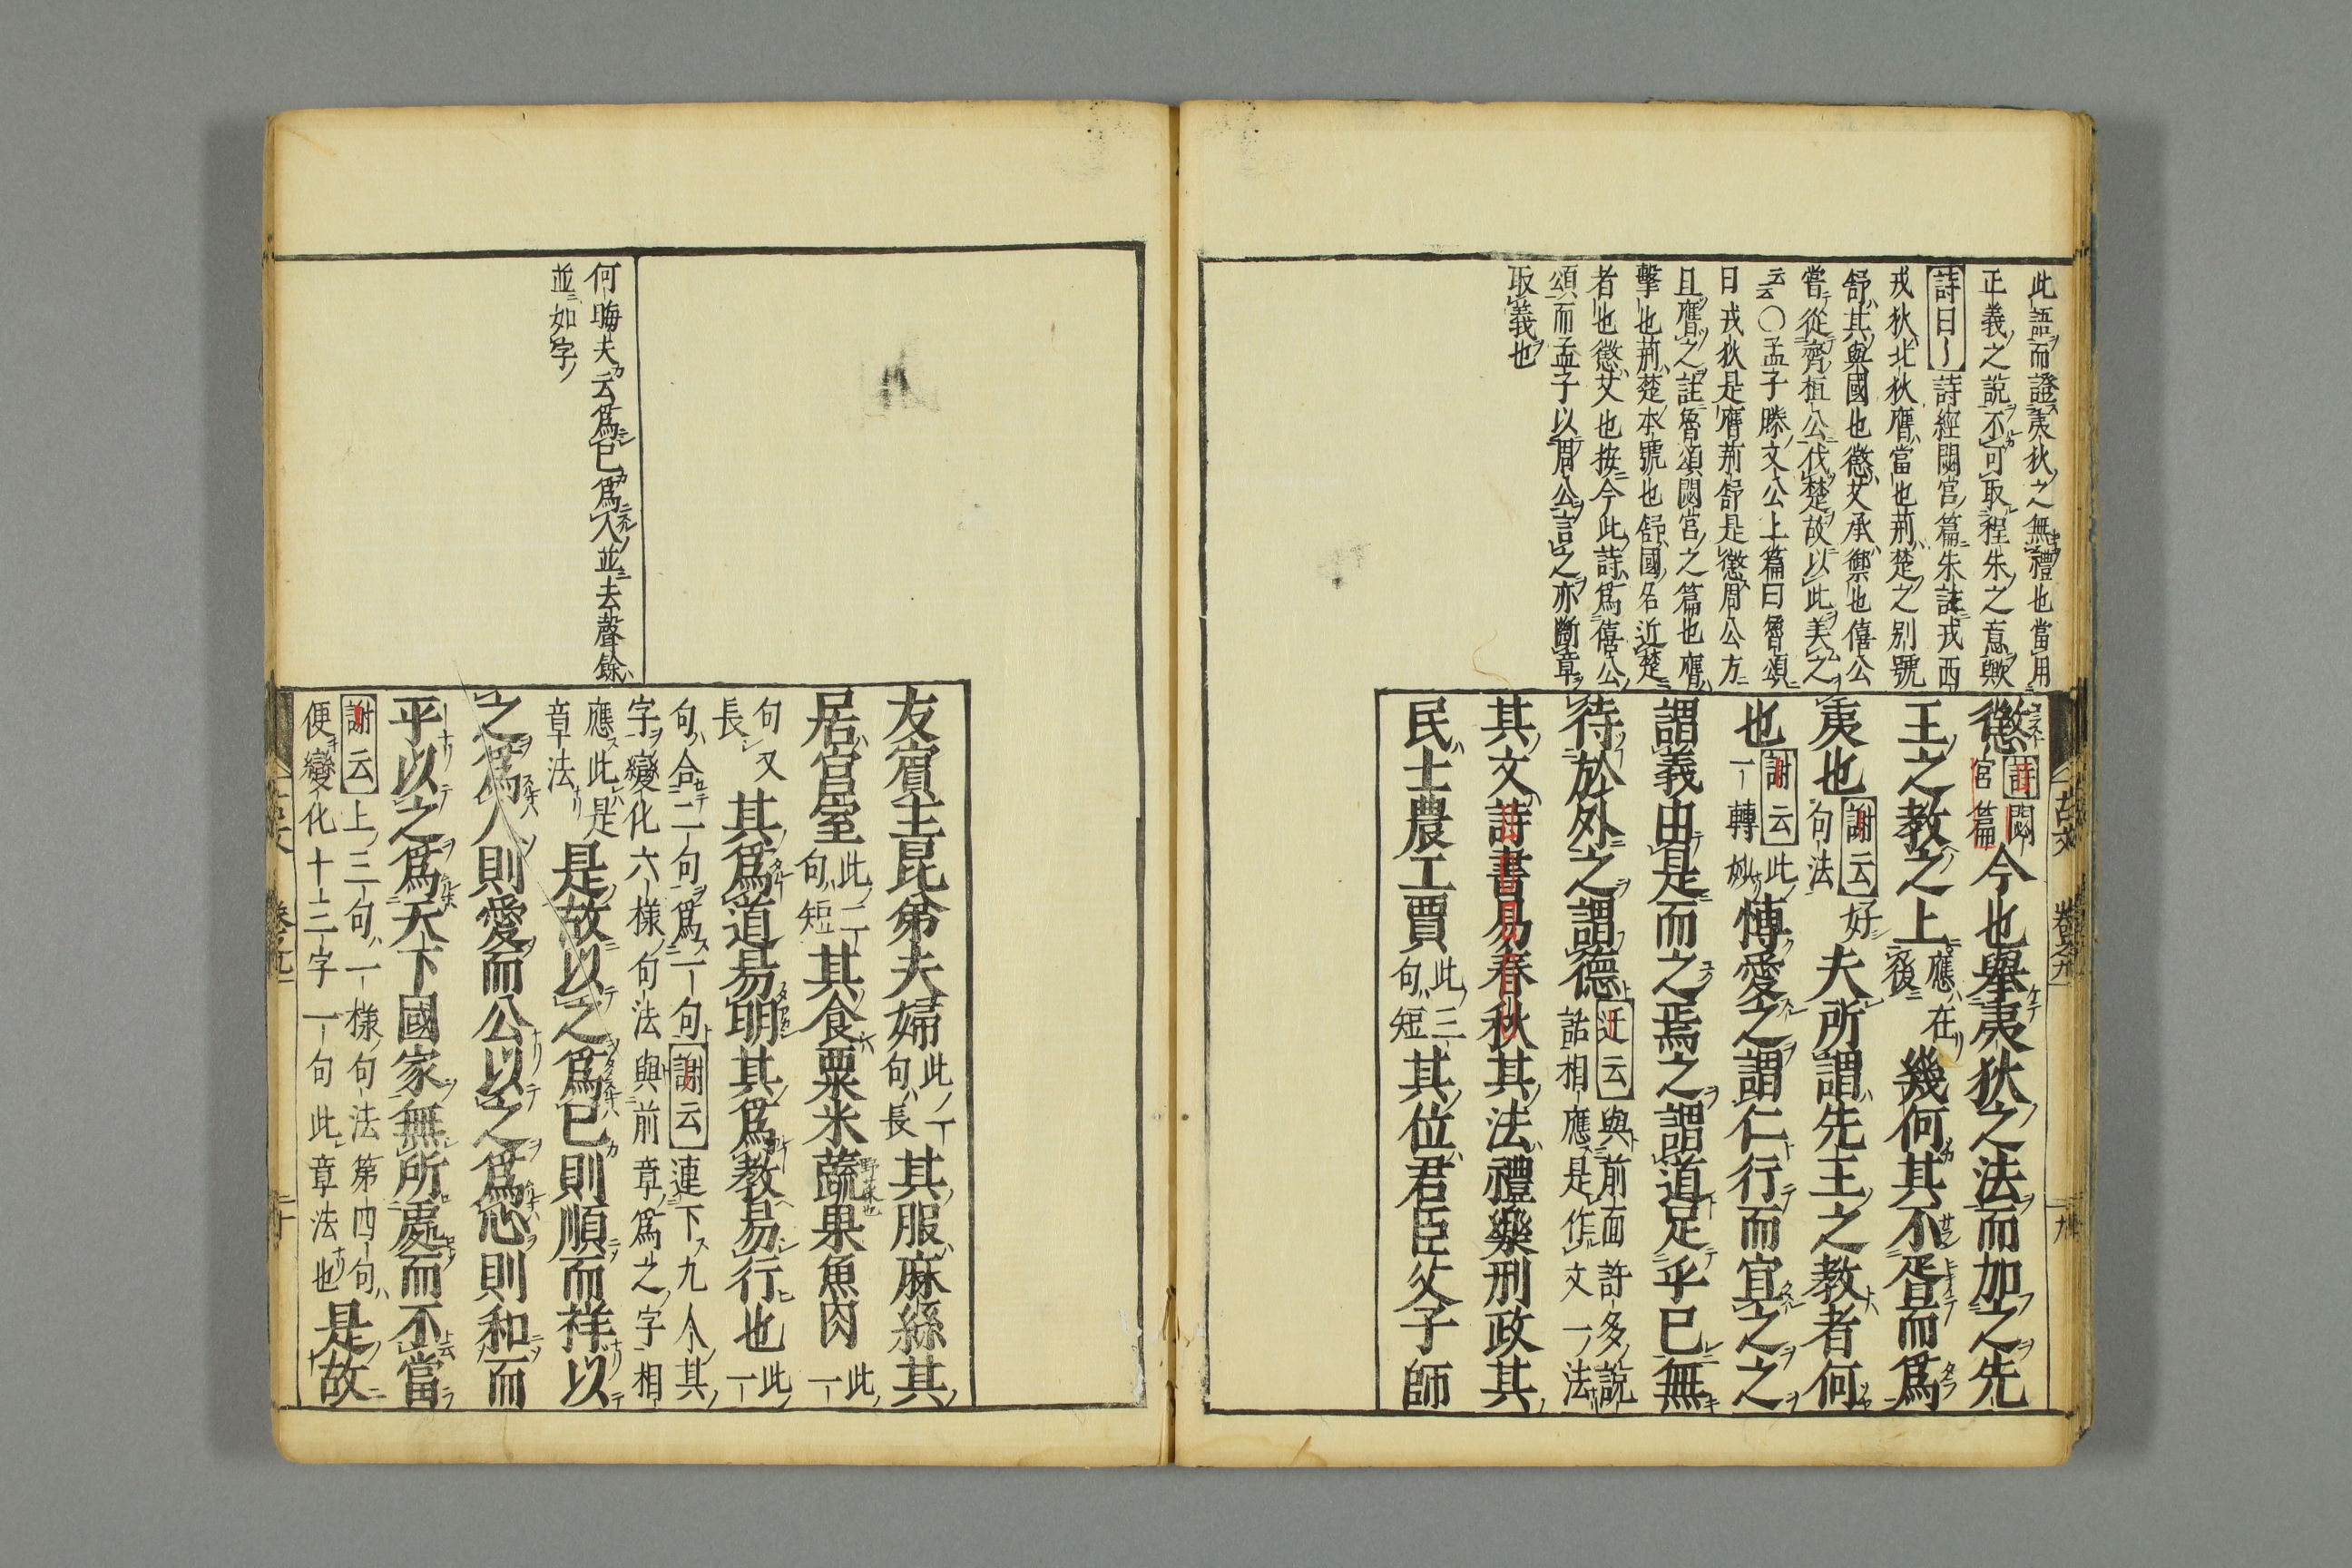 此語而證夷狄之無禮也當用
正義之說不可取程朱之意歟
詩曰〜詩經閟宮篇朱註戎西
戎狄北狄膺當也荊楚之別號
舒其與國也懲艾承禦也僖公
嘗從齊桓公伐楚故以此美之
云云〇孟子滕文公上篇曰魯頌
曰戎狄是膺荊舒是懲周公方
且膺之註魯頌閟宮之篇也膺
擊也荊楚本號也舒國名近楚
者也懲艾也按今此詩爲僖公
頌而孟子以周公言之亦斷章
取義也
懲詩閟宮篇今也舉夷狄之法而加之先
王之教之上應在後幾何其不胥而爲
夷也謝云句法好夫所謂先王之教者何
也謝云此一轉妙博愛之謂仁行而宜之之
謂義由是而之焉之謂道足乎已無
待於外之謂德迂云與前面許多說話相應是作文一法
其文詩書易春秋其法禮樂刑政其
民士農工賈此三句短其位君臣父子師
古文 卷之九 二十九
何晦夫云爲已爲人並去聲餘
並如字
友賓主昆弟夫婦此一句長其服麻絲其
居宮室此二句短其食粟米蔬野菜也果魚肉此一
句又長其爲道易明其爲教易行也此一
句合二句爲一句謝云連下九个其
字變化六樣句法與前章爲之字相
應此是章法是故以之爲已則順而祥以
之爲人則愛而公以之爲心則和而
平以之爲天下國家無所處而不當
謝云上三句一樣句法第四句
便變化十三字一句此章法也是故